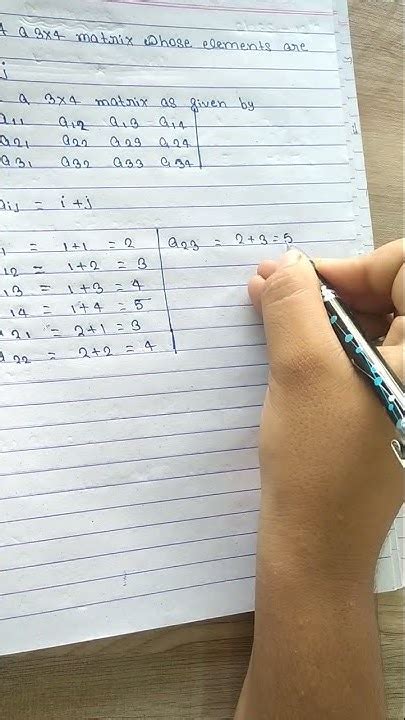 a 3x4 matrix whose elements are
j
a 3x4 matrix as given by
a11 a12 a13 a14
a21 a22 a23 a24
a31 a32 a33 a34
aij = i+j
1 = 1+1 = 2
12 = 1+2 = 3
13 = 1+3 = 4
14 = 1+4 = 5
a21 = 2+1 = 3
a22 = 2+2 = 4
a23 = 2+3=5